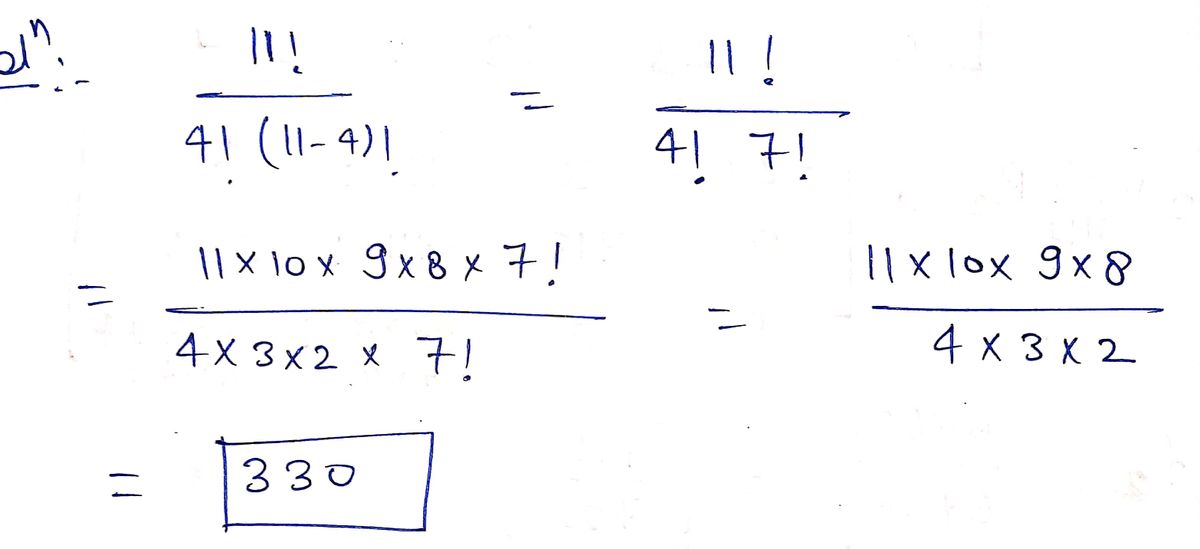 olⁿ:-
11! / 4! (11-4)! = 11! / 4! 7!
= 11 × 10 × 9 × 8 × 7! / 4 × 3 × 2 × 7! = 11 × 10 × 9 × 8 / 4 × 3 × 2
= 330